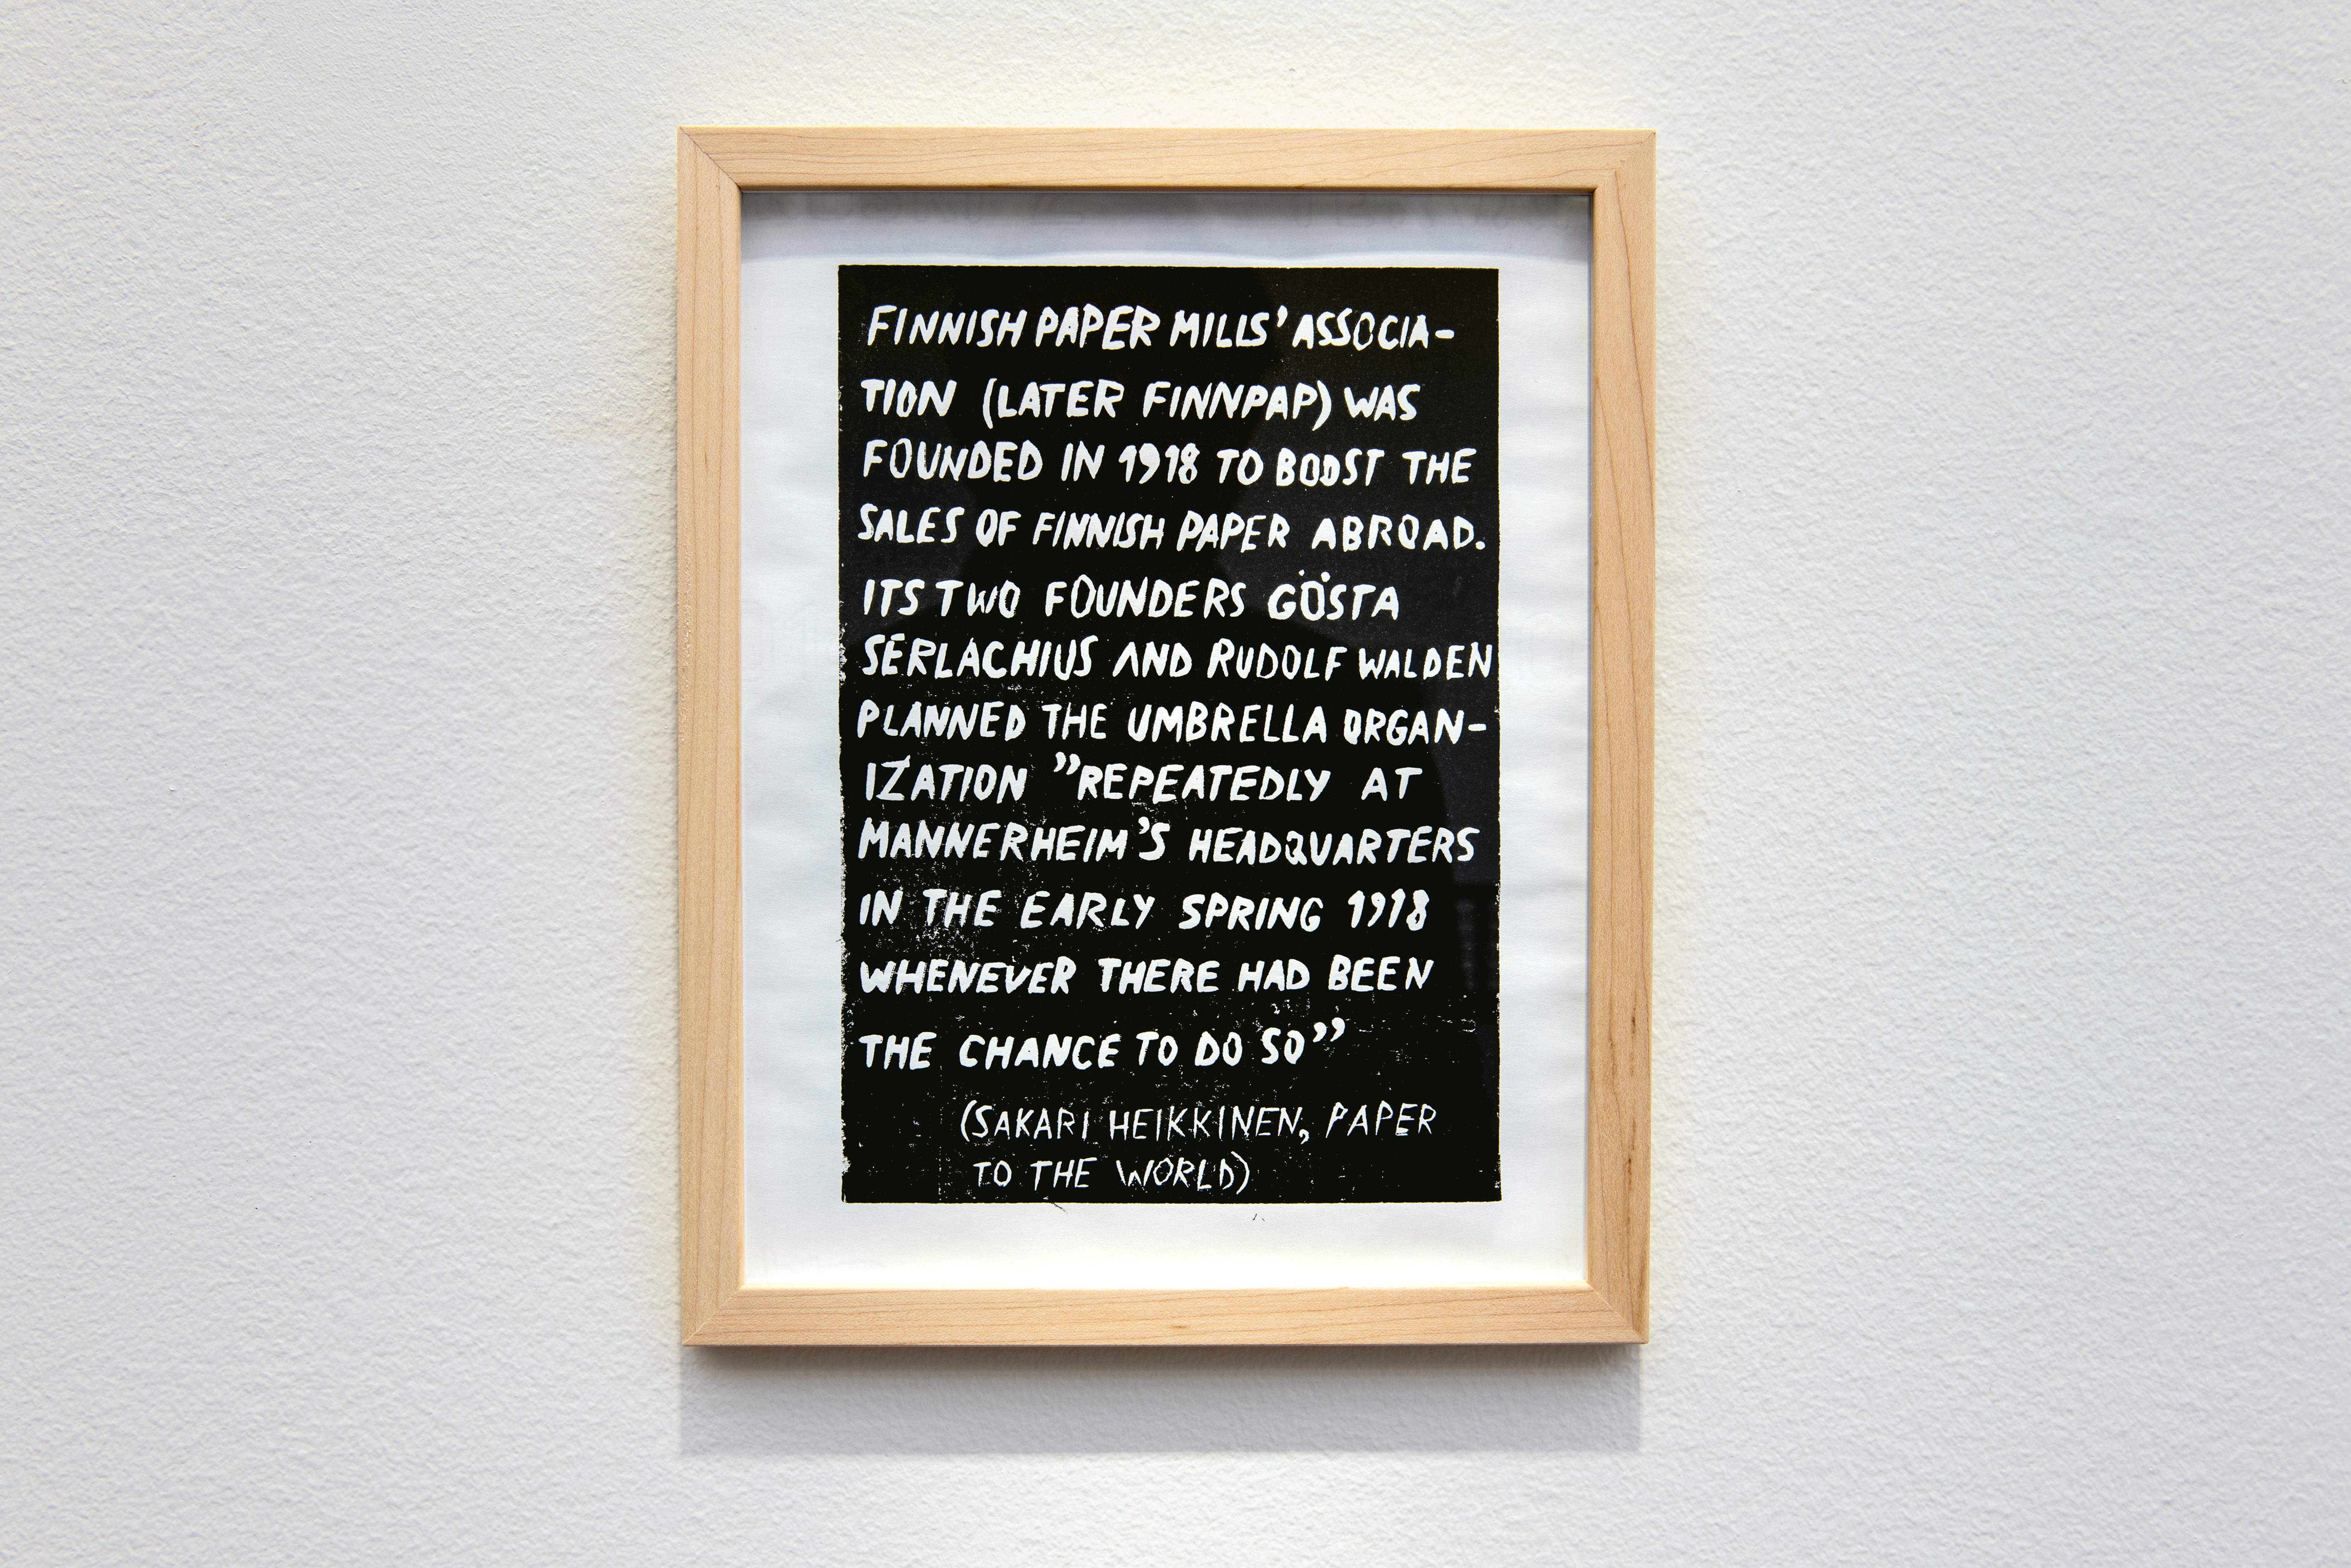 FINNISH PAPER MILLS' ASSOCIA-
TION (LATER FINNPAP) WAS
FOUNDED IN 1918 TO BOOST THE
SALES OF FINNISH PAPER ABROAD.
ITS TWO FOUNDERS GÖSTA
SERLACHIUS AND RUDOLF WALDEN
PLANNED THE UMBRELLA ORGAN-
IZATION ”REPEATEDLY AT
MANNERHEIM'S HEADQUARTERS
IN THE EARLY SPRING 1918
WHENEVER THERE HAD BEEN
THE CHANCE TO DO SO”
(SAKARI HEIKKINEN, PAPER
TO THE WORLD)